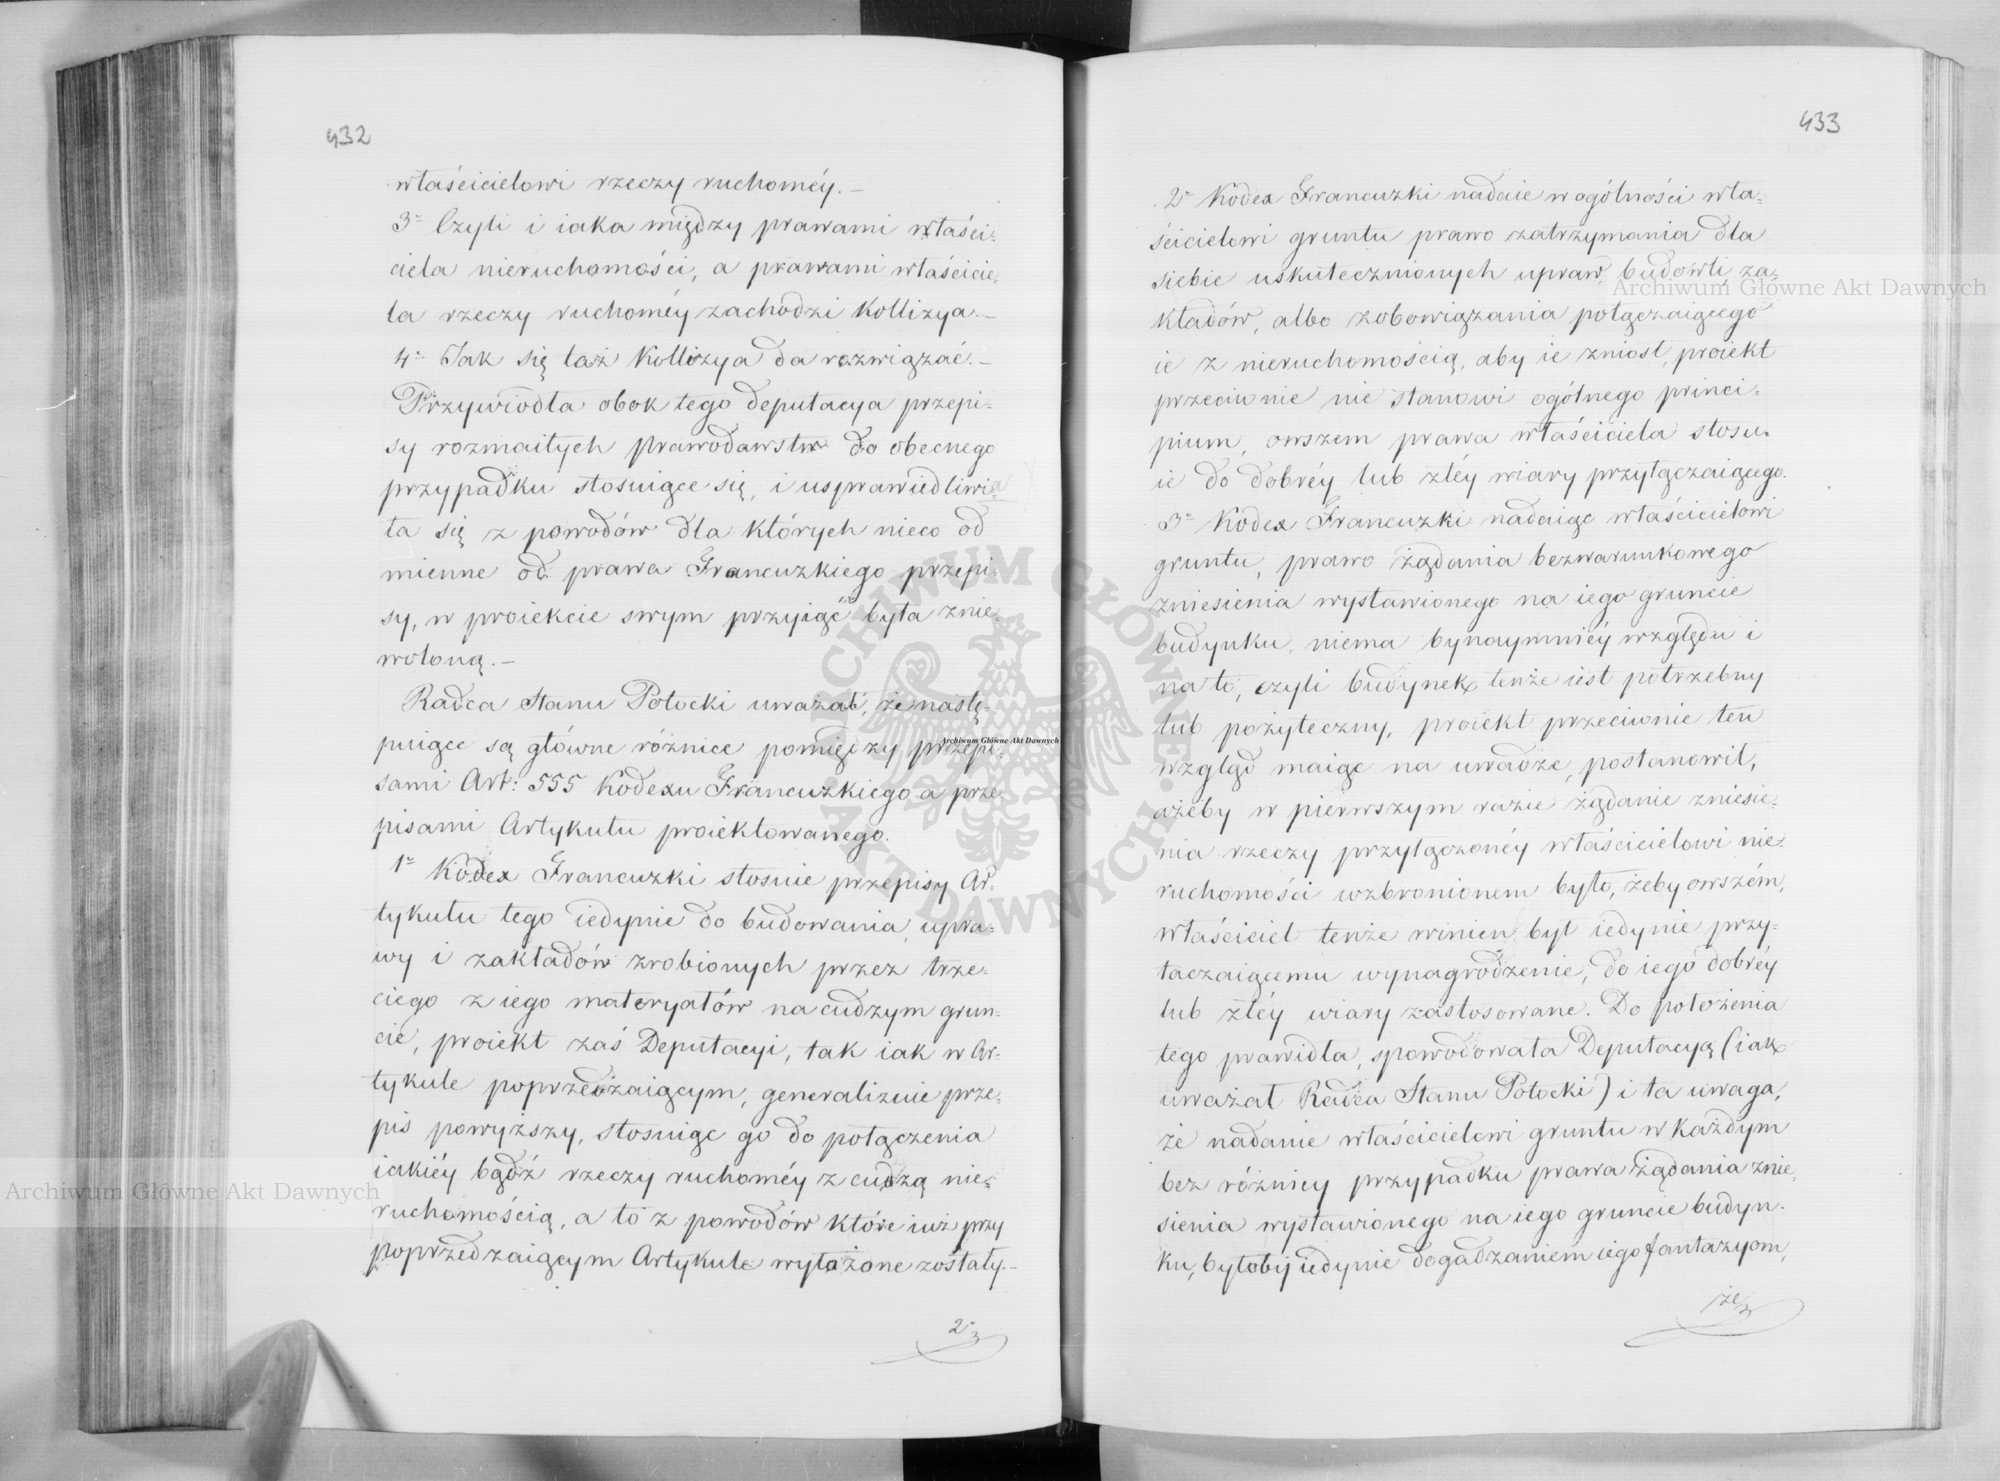 432
właścicielowi rzeczy ruchoméy.–
3° Czyli i iaka między prawami właści=
ciela nieruchomości, a prawami właścicie=
la rzeczy ruchoméy zachodzi Kollizya.–
4° Jak się taż Kollizya da rozwiązać.–
Przywiodła obok tego deputacya przepi=
sy rozmaitych Prawodawstw do obecnego
przypadku stosuiące się, i usprawiedliwia
ła się z powodów dla których nieco od
mienne od prawa Francuzkiego przepi=
sy, w proiekcie swym przyiąć była znie=
woloną.–
Radca Stanu Potocki uważał, że nastę=
puiące są główne różnice pomiędzy przepi=
sami Art: 555 Kodexu Francuzkiego a prze=
pisami Artykułu proiektowanego.
1° Kodex Francuzki stosuie przepisy Ar=
tykułu tego iedynie do budowania, upra=
wy i zakładów zrobionych przez trze=
ciego z iego materyałów na cudzym grun=
cie, proiekt zaś Deputacyi, tak iak w Ar=
tykule poprzedzaiącym, generalizuie prze=
pis powyższy, stosuiąc go do połączenia
iakiéy bądź rzeczy ruchoméy z cudzą nie=
ruchomością, a to z powodów które iuż przy
poprzedzaiącym Artykule wyłożone zostały.–
2°
433
2° Kodex Francuzki nadaie w ogólności wła=
ścicielowi gruntu prawo zatrzymania dla
siebie uskutecznionych upraw, budowli, za=
kładów, albo zobowiązania połączaiącego
ie z nieruchomością, aby ie zniosł, proiekt
przeciwnie nie stanowi ogólnego princi=
pium, owszem prawa właściciela stosu=
ie do dobréy lub złéy wiary przyłączaiącego.
3° Kodex Francuzki nadaiąc właścicielowi
gruntu, prawo żądania bezwarunkowego
zniesienia wystawionego na iego gruncie
budynku, niema bynaymniéy względu i
na to, czyli budynek tenże iest potrzebny
lub pożyteczny, proiekt przeciwnie ten
wzgląd maiąc na uwadze, postanowił,
ażeby w pierwszym razie żądanie zniesie=
nia rzeczy przyłączonéy właścicielowi nie=
ruchomości wzbronionem było, żeby owszém,
właściciel tenże winien był iedynie przy=
łaczaiącemu wynagrodzenie, do iego dobréy
lub złéy wiary zastosowane. Do położenia
tego prawidła, spowodowała Deputacyą (iak
uważał Radca Stanu Potocki) i ta uwaga,
że nadanie właścicielowi gruntu w każdym
bez różnicy przypadku prawa żądania znie=
sienia wystawionego na iego gruncie budyn=
ku, byłoby iedynie dogadzaniem iego fantazyom,
że
Archiwum Główne Akt Dawnych
Archiwum Główne Akt Dawnych
Archiwum Główne Akt Dawnych
ARCHIWUM GŁÓWNE AKT DAWNYCH